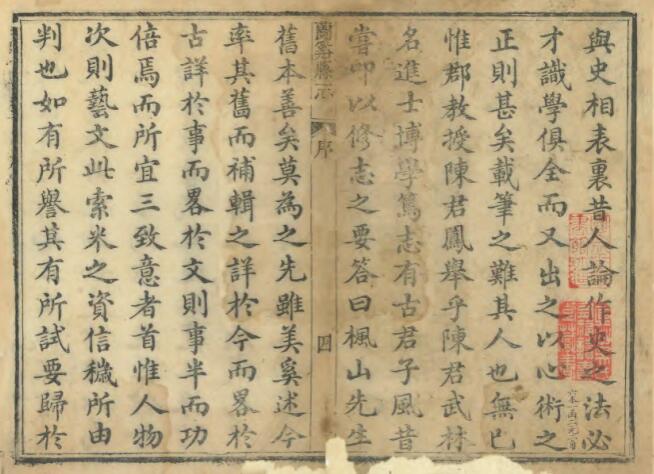 與史相表裏昔人論作史之法必
才識學俱全而又出之以心術之
正則甚矣載筆之難其人也無已
惟郡教授陳君鳳舉乎陳君武林
名進士博學篤志有古君子風昔
嘗叩以修志之要答曰楓山先生
蘭谿縣志 序 四
舊本善矣莫為之先雖美奚述今
率其舊而補輯之詳於今而畧於
古詳於事而畧於文則事半而功
倍焉而所宜三致意者首惟人物
次則藝文此索米之資信穢所由
判也如有所譽其有所試要歸於